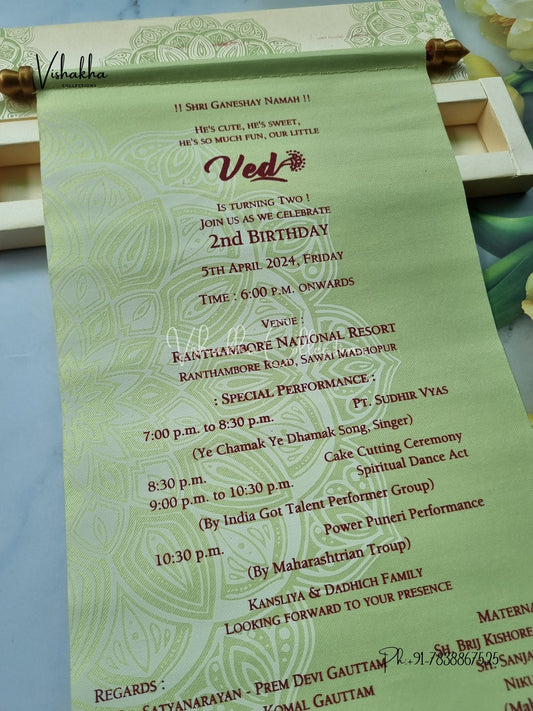 Vishakha
COLLECTIONS
!! Shri Ganeshay Namah !!
He's cute, he's sweet,
he's so much fun, our little
Ved
Is turning Two !
Join us as we celebrate
2nd Birthday
5th April 2024, Friday
Time : 6:00 p.m. onwards
Venue :
Ranthambore National Resort
Ranthambore Road, Sawai Madhopur
: Special Performance :
7:00 p.m. to 8:30 p.m. Pt. Sudhir Vyas
(Ye Chamak Ye Dhamak Song, Singer)
8:30 p.m. Cake Cutting Ceremony
9:00 p.m. to 10:30 p.m. Spiritual Dance Act
(By India Got Talent Performer Group)
10:30 p.m. Power Puneri Performance
(By Maharashtrian Troup)
Kansliya & Dadhich Family
Looking forward to your presence
Ph.+91-7838867525
Regards :
Satyanarayan - Prem Devi Gauttam
Komal Gauttam
Materna
Sh. Brij Kishore
Sh. Sanja
Niku
(Mal